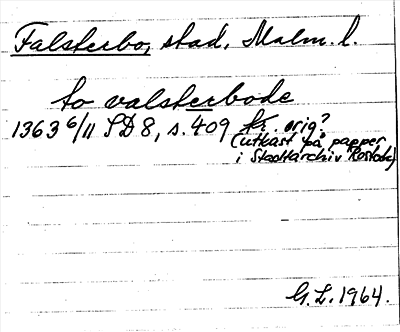 Falsterbo, stad, Malm. l.
to valsterbode
1363 6/11 SD 8, s. 409 tr. orig?
(utkast på papper
i Stadtarchiv Rostock)
G. L. 1964.